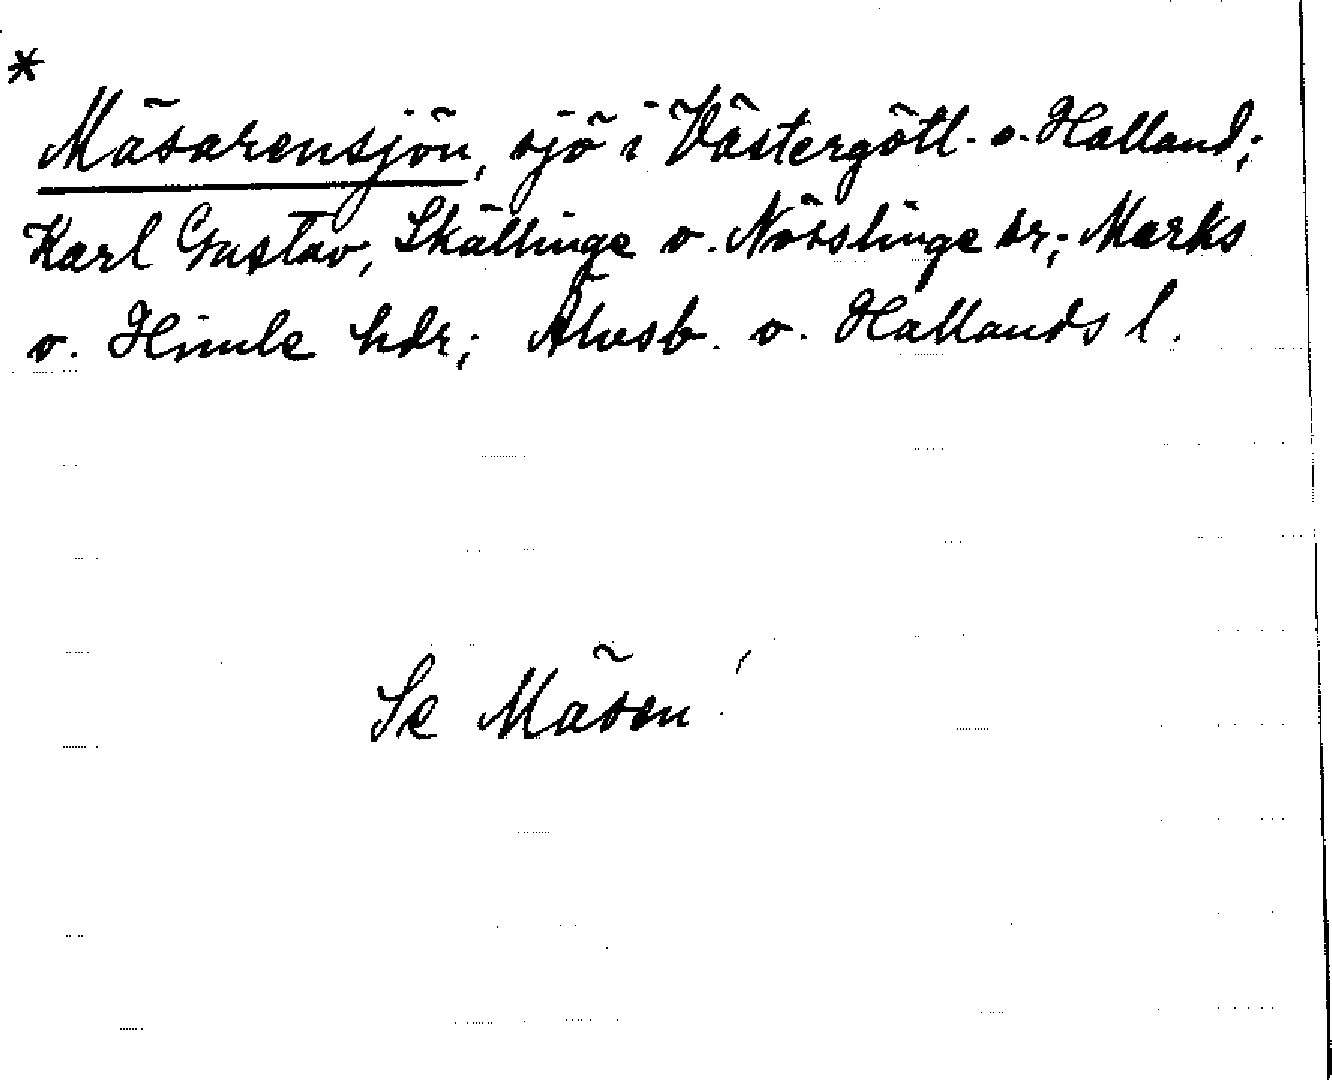 *
Mäsarensjön, sjö i Västergötl. o. Halland;
Karl Gustav, Skällinge o. Nösslinge sr; Marks
o. Himle hdr; Älvsb. o. Hallands l.
Se Mäsen!